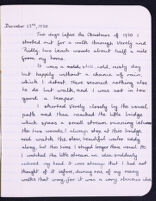 December 15th, 1930
Two days before the Christmas of 1930 I
started out for a walk through Verity and
Ridley two beech woods about half a mile
from my home.
It was a mild, still, cold, misty day
but happily without a chance of rain
which I detest. There seemed nothing else
to do but walk, and I was not in too
good a temper.
I started slowly by the usual
path and then reached the little bridge
which spans a small stream running between
the two woods. I always stop at this bridge
and watch the slow, beautiful water eddy
along, but this time I stayed longer than usual. As
I watched the little stream an idea suddenly
entered my head. It was strange that I had not
thought of it before, during one of my many
walks that way, for it was a very obvious idea